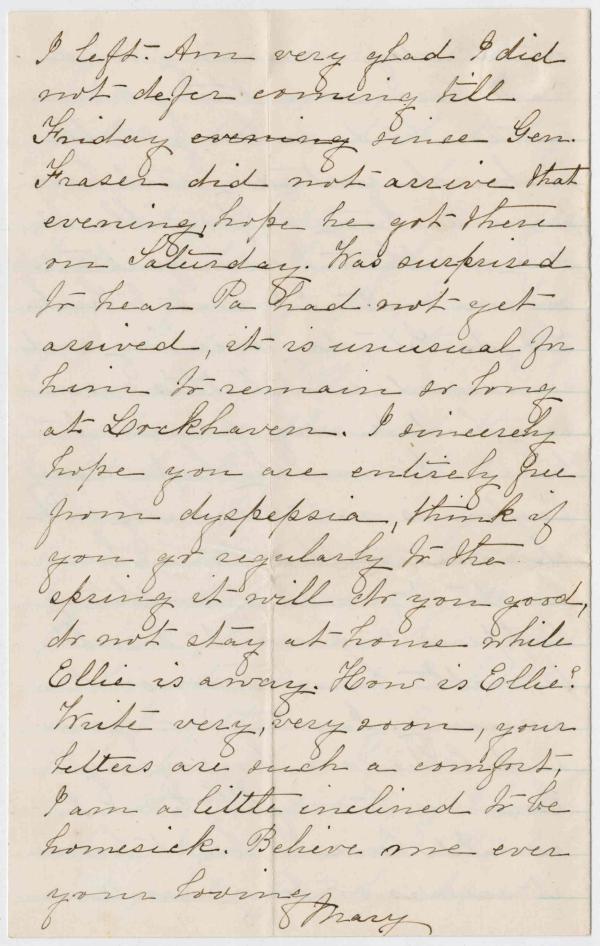 I left. Am very glad I did
not defer coming till
Friday evening since Gen.
Fraser did not arrive that
evening, hope he got there
on Saturday. Was surprised
to hear Pa had not yet
arrived, it is unusual for
him to remain so long
at Lockhaven. I sincerely
hope you are entirely free
from dyspepsia, think if
you go regularly to the
spring it will do you good,
do not stay at home while
Ellie is away. How is Ellie?
Write very, very soon, your
letters are such a comfort,
I am a little inclined to be
homesick. Believe me ever
your loving
Mary